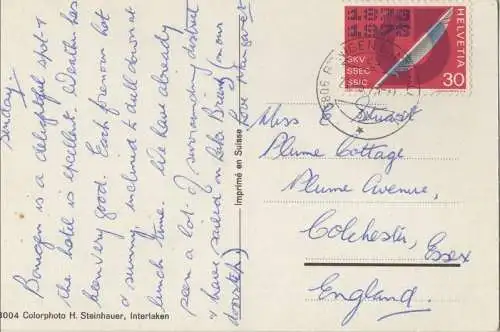 Sunday.
Bönigen is a delightful spot &
the hotel is excellent. Weather has
been very good. Each forenoon hot
& sunny, inclined to dull down at
lunch time. We have already
seen a lot of surrounding district
& have sailed on Lake Brienz (on our
doorstep.)
Love Margaret
3004 Colorphoto H. Steinhauer, Interlaken
Imprimé en Suisse
1873
1973
SKV
SSEC
SSIC
HELVETIA
30
3806
Miss E Stuart
Plume Cottage
Plume Avenue,
Colchester, Essex
England.